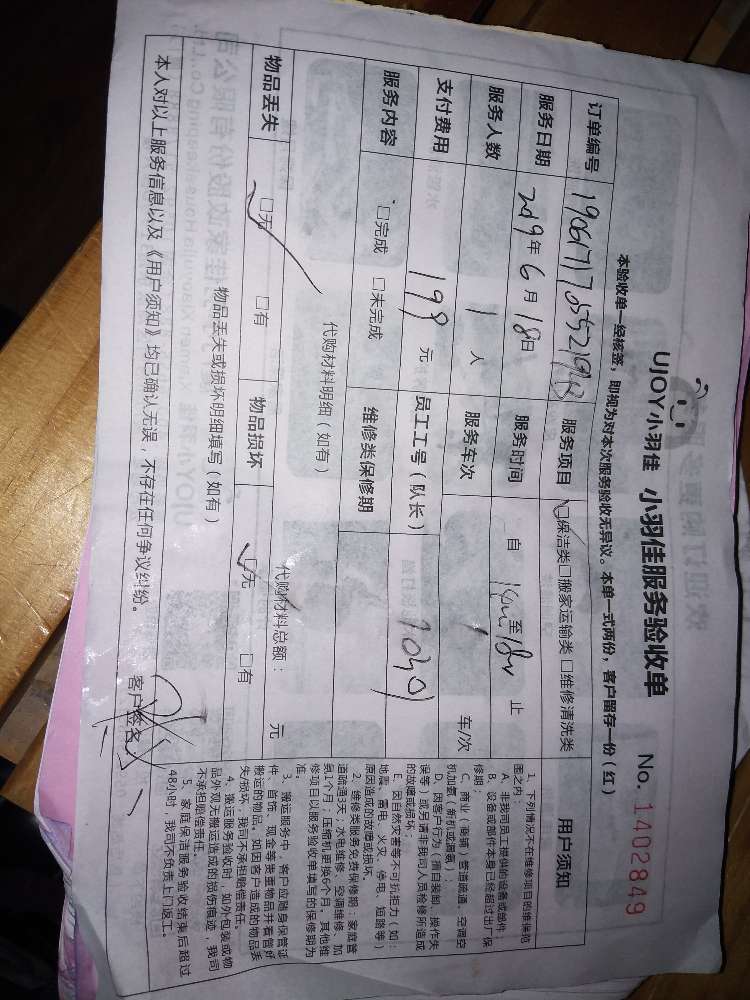 UJOY小羽佳 小羽佳服务验收单 No. 1402849
本验收单一经核签，即视为对本次服务验收无异议。本单一式两份，客户留存一份（红）
订单编号 服务项目 □保洁类□搬家运输类□维修清洗类
服务日期 2019年6月18日 服务时间 自 至18 止
服务人数 1人 服务车次 / 车/次
支付费用 199元 员工工号（队长）
服务内容 □完成 □未完成 维修类保修期
代购材料明细（如有） 代购材料总额： 元
物品丢失 □无 □有 物品损坏 □无 □有
物品丢失或损坏明细填写（如有）
本人对以上服务信息以及《用户须知》均已确认无误，不存在任何争议纠纷。 客户签名：
用户须知
1、下列情况不在维修项目的维保范
围之内：
A、非我司员工提供的设备或部件
B、设备或部件本身已经超过出厂保
修期；
C、商业（商铺）管道疏通、空调空
机加氟（新机或漏氟）；
D、因客户行为（擅自装卸、操作失
误等）或另请非我司人员检修所造成
的故障或损坏；
E、因自然灾害等不可抗拒力，如：
地震、雷电、火灾、停电、短路等）
原因造成的故障或损坏。
2、维修类服务免费保修期：家庭管
道疏通3天；水电维修、空调维修、加
氟1个月；压缩机更换6个月。其他维
修项目以服务验收单填写的保修期为
准。
3、搬运服务中，客户应随身保管证
件、首饰、现金等贵重物品并看管所
搬运的物品。如因客户造成的物品丢
失/损坏，我司不承担赔偿责任。
4、搬运服务验收时，如外包装或物
品外观无搬运造成的损伤痕迹，我司
不承担赔偿责任。
5、家庭保洁服务验收结束后超过
48小时，我司不负责上门返工。